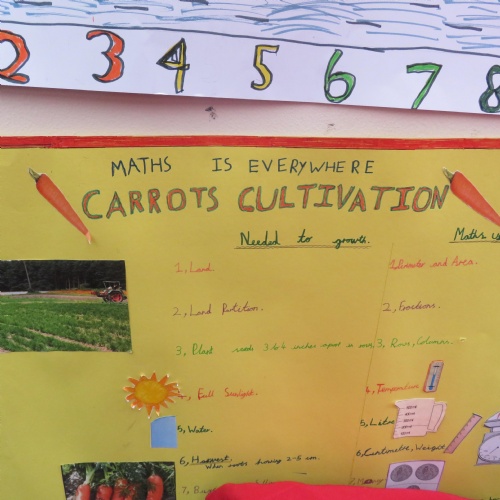 2 3 4 5 6 7 8
MATHS IS EVERYWHERE
CARROTS CULTIVATION
Needed to growth.
1, Land.
2, Land
3, Plant seeds 3 to 6 inches apart in
4, Full Sunlight.
5, Water.
6, Harvest,
When roots showing 2-5 cm.
7,
Maths
1, and Area.
2, Fractions.
3, Rows, Columns.
4, Temperature
5, Litre
6, Centimetre, Weight